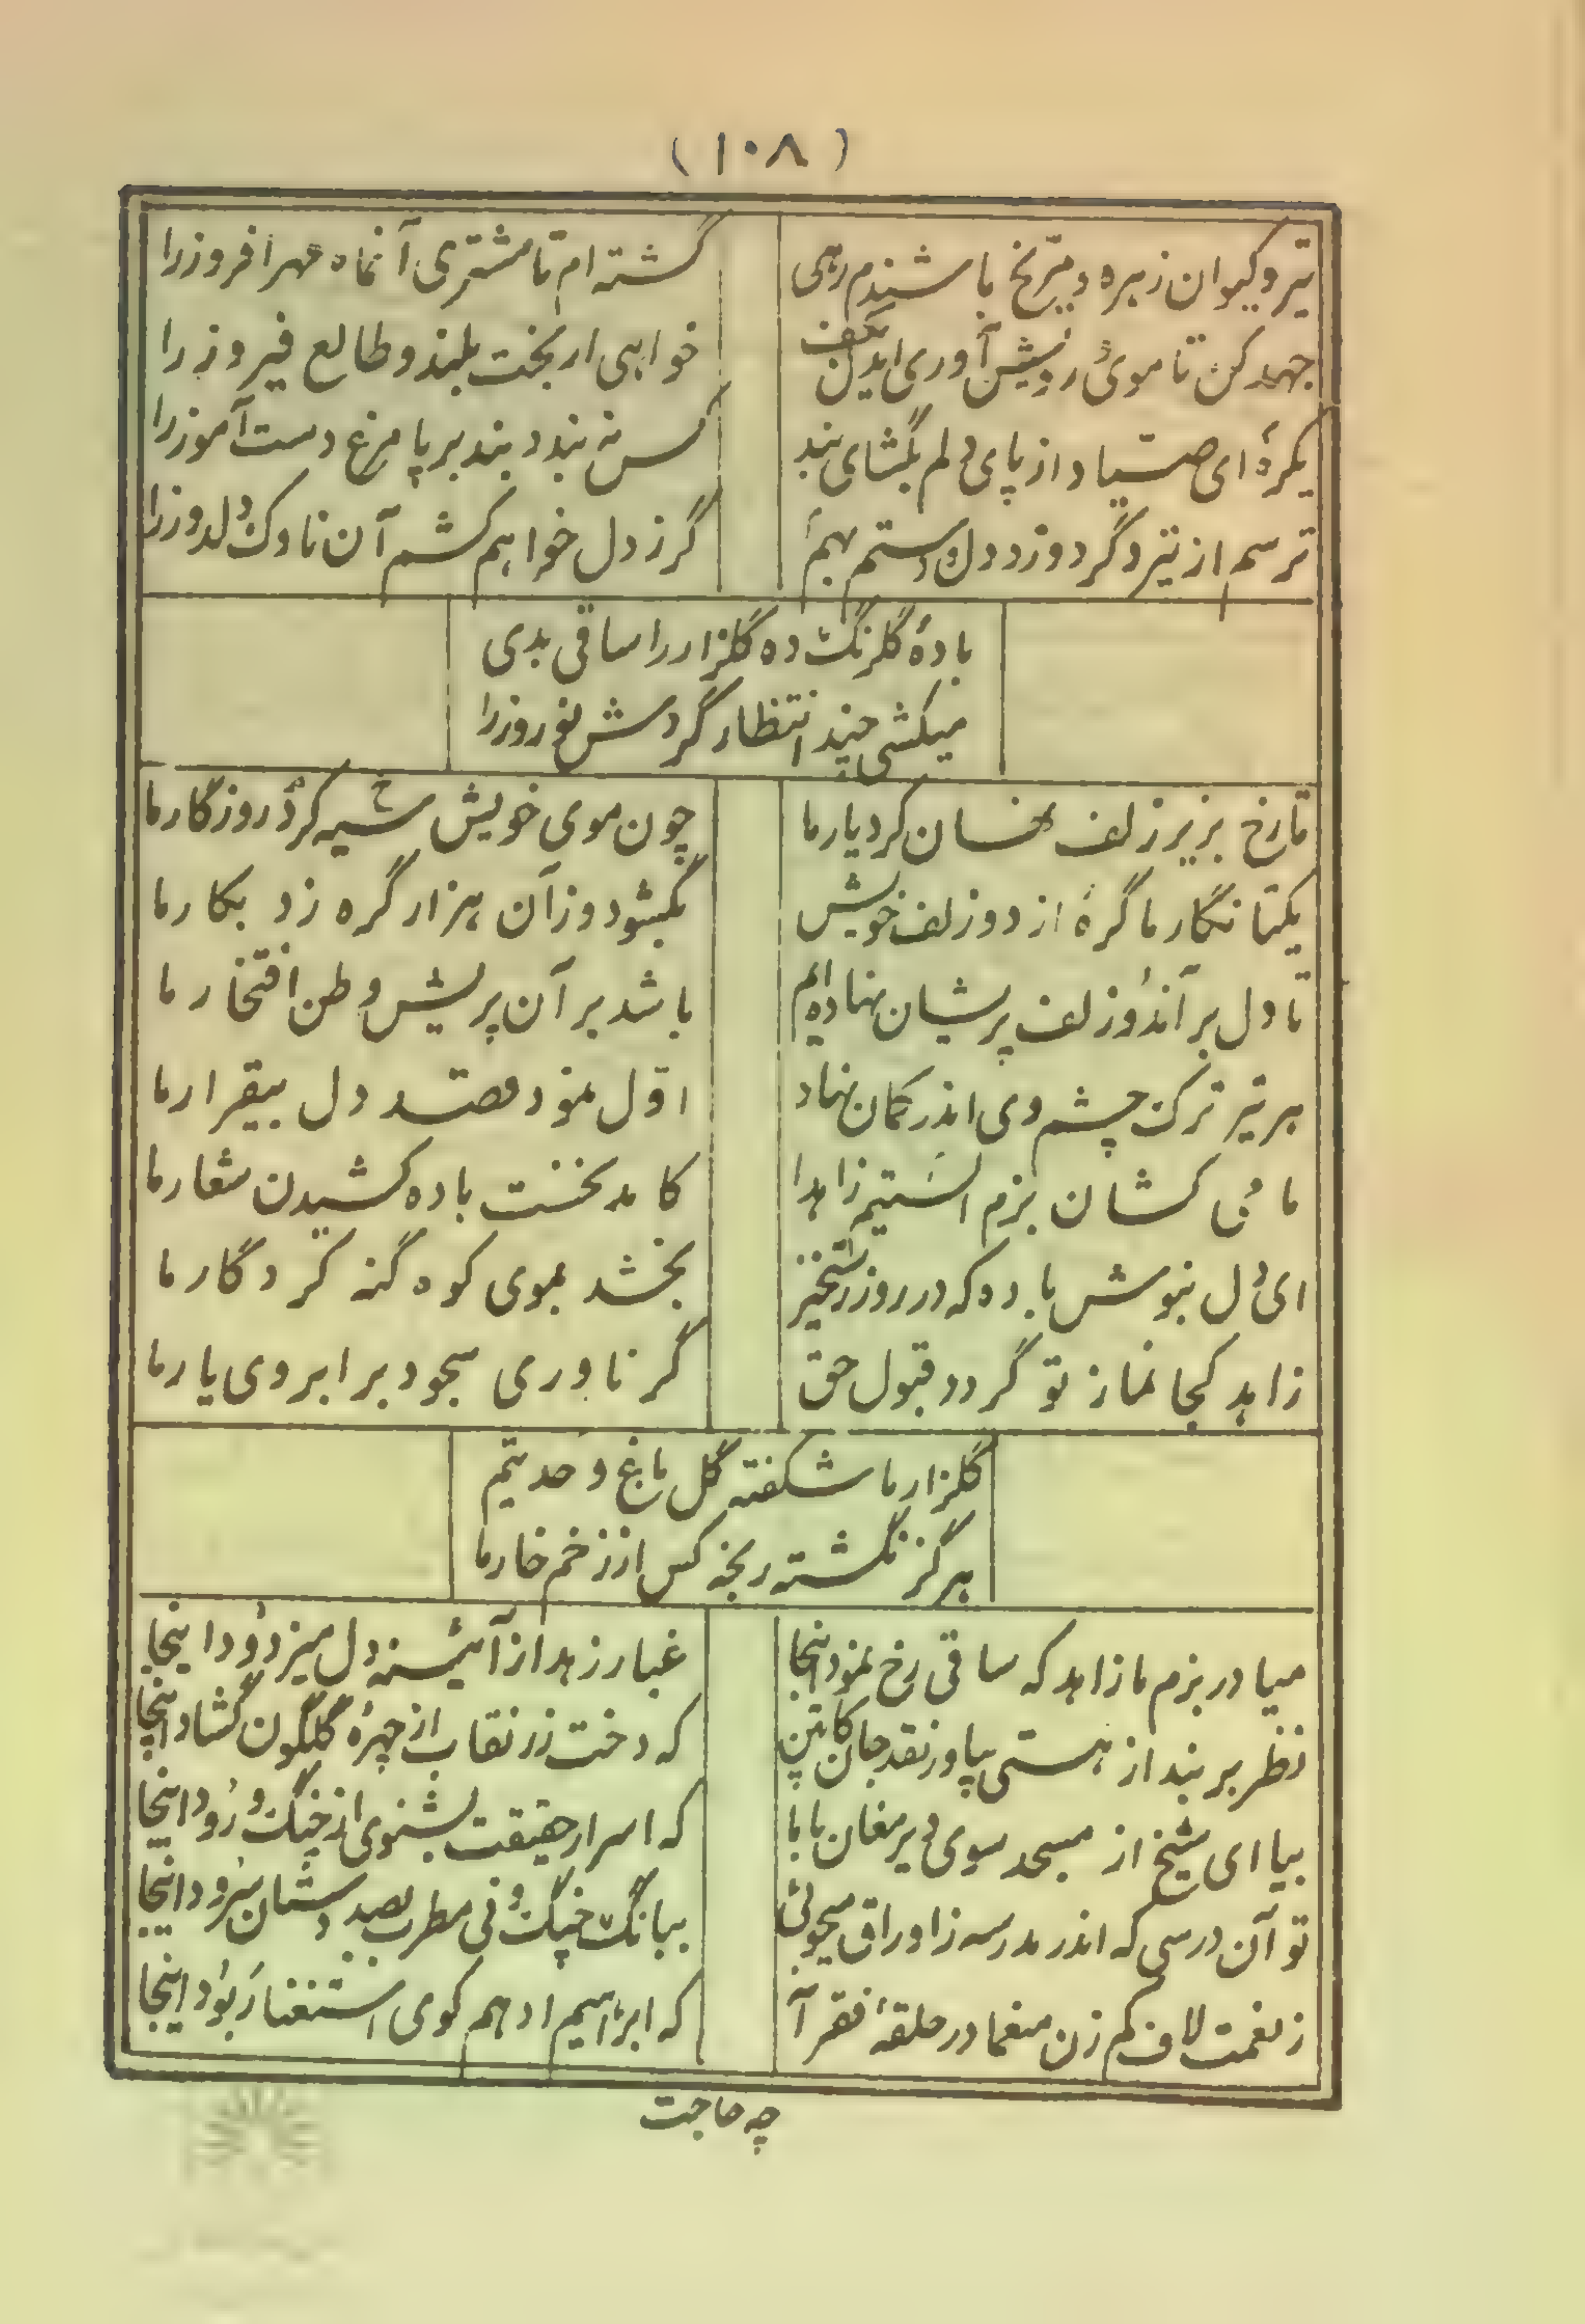 (۱۰۸)
تیر و کیوان زهره و مرّیخ باشندم رهی
گشته ام تا مشتری آنماه مهر افروز را
جهد کن تا موی رویش آوری ایدل بکف
خواهی ار بخت بلند و طالع فیروز را
یکره ای صیّاد از پای دلم بگشای بند
کس نه بندد بند بر پا مرغ دست آموز را
ترسم از تیر دگر دوزد دل و دستم بهم
گر ز دل خواهم کشم آن ناوک دلدوز را
بادهٔ گلرنگ ده گلزار را ساقی بدی
میکشی چند انتظار گردش نوروز را
تا رخ بزیر زلف نهان کرد یار ما
چون موی خویش سیه کرد روزگار ما
یکتا نگار ما گره از دو زلف خویش
بگشود وز آن هزار گره زد بکار ما
تا دل بر آندو زلف پریشان نهاده ایم
باشد بر آن پریش وطن افتخار ما
هر تیر ترک چشم وی اندر کمان نهاد
اوّل نمود قصد دل بیقرار ما
ما می کشان بزم الستیم زاهدا
کامد نخست باده کشیدن شعار ما
ای دل بنوش باده که در روز رستخیز
بخشد بموی کوه گنه کردگار ما
زاهد کجا نماز تو گردد قبول حق
گر ناوری سجود بر ابروی یار ما
گلزار ما شکفته گل باغ وحدتیم
هرگز نگشته رنجه کس از زخم خار ما
میا در بزم ما زاهد که ساقی رخ نمود اینجا
غبار زهد از آئینهٔ دل میزدود اینجا
نظر بر بند از هستی بیاور نقد جان کابین
که دخت رز نقاب از چهرهٔ گلگون گشاد اینجا
بیا ای شیخ از مسجد سوی دیر مغان بابا
که اسرار حقیقت بشنوی از چنگ و رود اینجا
تو آن درسی که اندر مدرسه ز اوراق میجوئی
ببانگ چنگ و نی مطرب بصد دستان سرود اینجا
ز نعمت لاف کم زن منعما در حلقهٔ فقر آ
که ابراهیم ادهم کوی استغنا ربود اینجا
چه حاجت